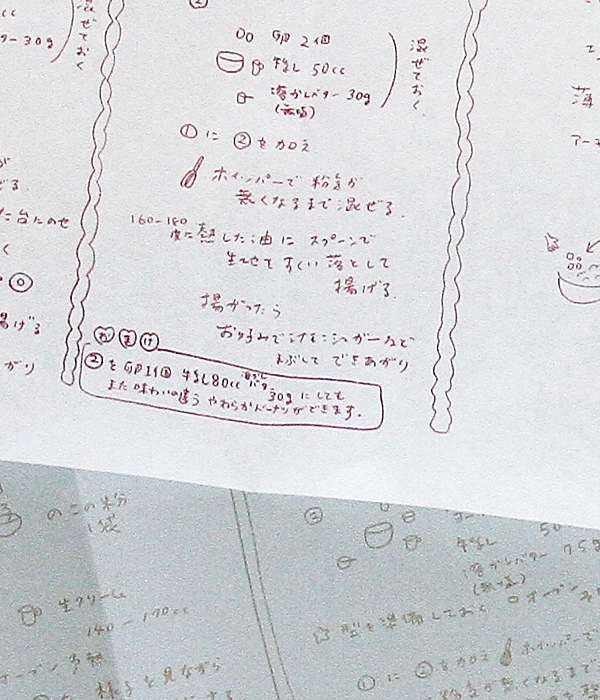 ②
卵 2個
牛乳 50cc
溶かしバター 30g
(無塩)
混ぜておく.
① に ② を加え
ホイッパーで 粉気が
無くなるまで 混ぜる.
160-180
度に熱した油に スプーンで
生地をすくい 落として
揚げる.
揚がったら
お好みで シュガーなど
まぶして できあがり
おまけ
② を 卵1個 牛乳80cc 溶かしバター 30g にしても
また 味わいの違う やわらかドーナツができます.
cc
ター 30g
混ぜておく
ぜる.
た台にのせ
く
揚げる
がり
薄
アー
のこの粉
1袋
生クリーム
140-170cc
オーブン予熱
様子を見ながら
②
牛乳 50
溶かしバター 75g
(無塩)
型を準備しておく オーブン
① に ② を加え ホイッパーで
粉気が無くなるまで